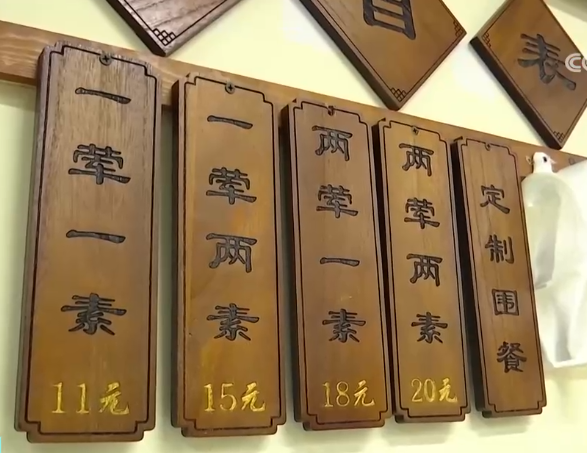 目
表
一荤一素
11元
一荤两素
15元
两荤一素
18元
两荤两素
20元
定制围餐